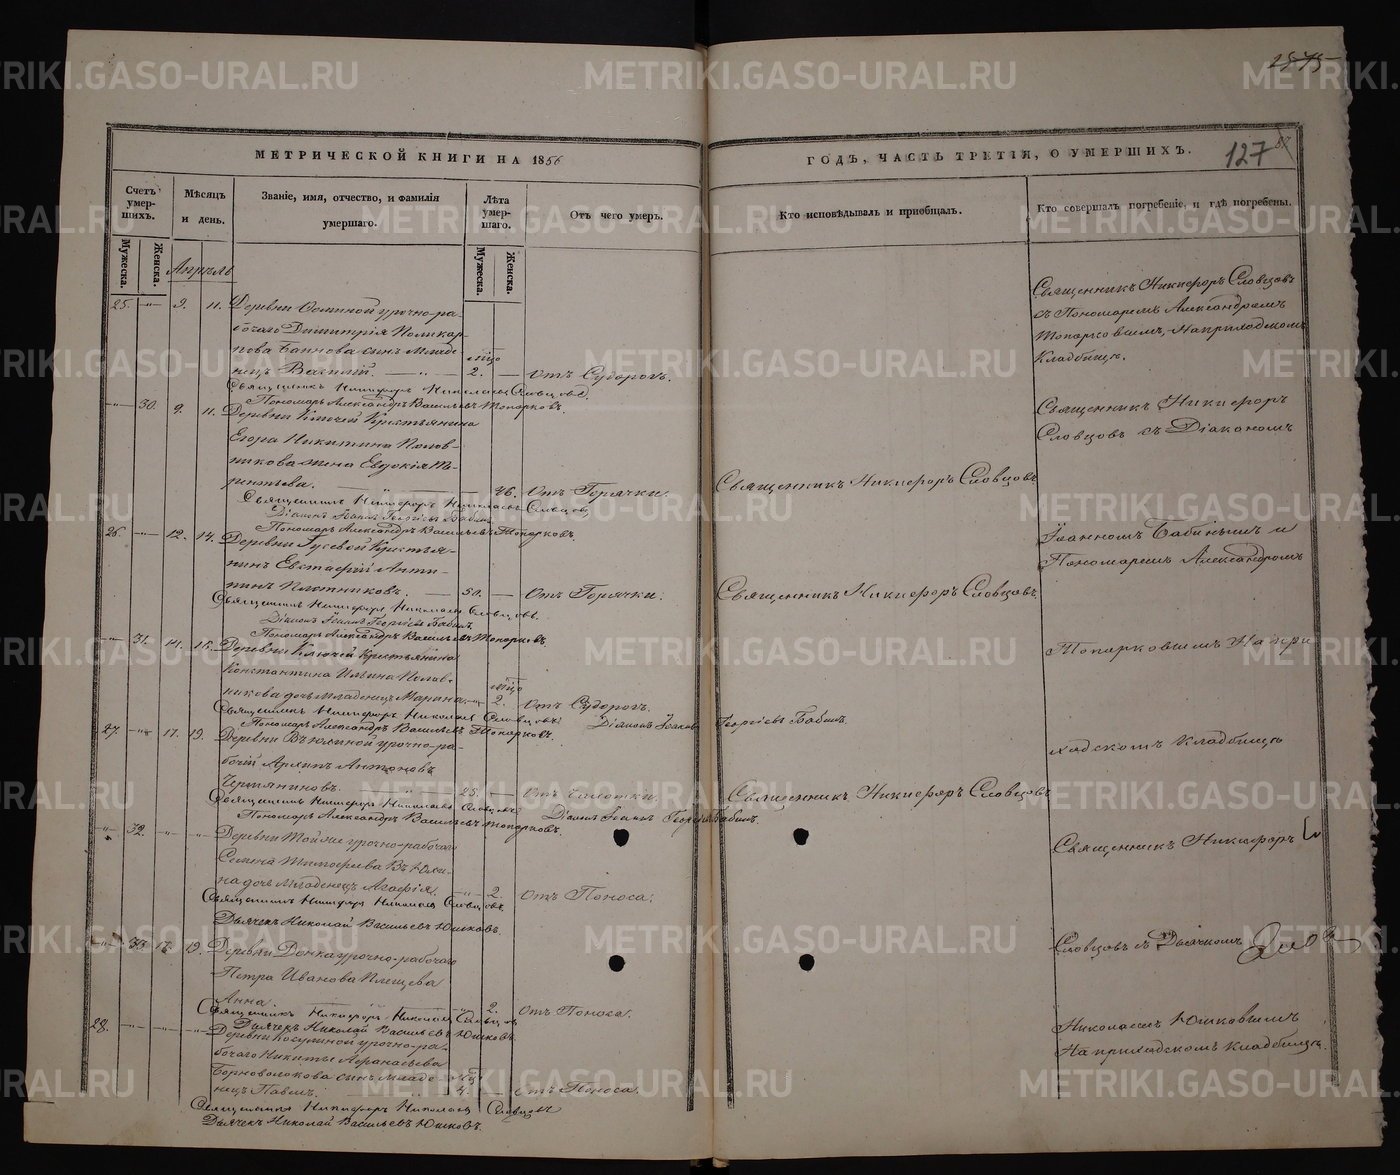 МЕТРИЧЕСКОЙ КНИГИ НА 1856
ГОДЪ, ЧАСТЬ ТРЕТІЯ, О УМЕРШИХЪ.
127
Счетъ умер-
шихъ.
Мужеска.
Женска.
Мѣсяцъ
и день.
Званіе, имя, отчество, и фамилія
умершаго.
Лѣта
умер-
шаго.
Мужеска.
Женска.
Отъ чего умеръ.
Кто исповѣдывалъ и пріобщалъ.
Кто совершалъ погребеніе, и гдѣ погребены.
Апрѣль
25. 9. 11. Деревни урочно-ра-
бочаго Димитрія Поликар-
пова сынъ Младе-
нецъ Василій. 2. Отъ Судорогъ.
Священникъ Никифоръ Николаевъ Словцовъ.
Пономарь Александръ Васильевъ Топорковъ.
Священникъ Никифоръ Словцовъ
съ Пономаремъ Александромъ
Топорковымъ, На приходскомъ
Кладбищѣ.
30. 9. 11. Деревни Ключей Крестьянина
Егора Никитина Полов-
никова жена Евдокія Те-
рентьева. 46. Отъ Горячки.
Священникъ Никифоръ Словцовъ
Священникъ Никифоръ Николаевъ Словцовъ
Діаконъ Іоаннъ Георгіевъ Бабинъ
Пономарь Александръ Васильевъ Топорковъ.
Священникъ Никифоръ
Словцовъ съ Діакономъ
26. 12. 14. Деревни Гусевой Крестья-
нинъ Евстафій Анти-
пинъ Плотниковъ. 50. Отъ Горячки.
Священникъ Никифоръ Словцовъ
Священникъ Никифоръ Николаевъ Словцовъ.
Діаконъ Іоаннъ Георгіевъ Бабинъ.
Пономарь Александръ Васильевъ Топорковъ.
Іоанномъ Бабинымъ и
Пономаремъ Александромъ
31. 14. 15. Деревни Ключей Крестьянина
Константина Ильина Полов-
никова дочь Младенецъ Марина 2. Отъ Судорогъ.
Священникъ Никифоръ Николаевъ Словцовъ. Діаконъ Іоаннъ Георгіевъ Бабинъ.
Пономарь Александръ Васильевъ Топорковъ.
Топорковымъ На при
27. 17. 19. Деревни Вьюхиной урочно-ра-
бочій Архипъ Антоновъ
25. Отъ Чахотки.
Священникъ Никифоръ Словцовъ
Священникъ Никифоръ Николаевъ Словцовъ
Пономарь Александръ Васильевъ Топорковъ. Діаконъ Іоаннъ Георгіевъ Бабинъ.
ходскомъ кладбищѣ
32. Деревни урочно-рабочаго
Семена Тимофеева Вьюхи-
на дочь Младенецъ Агафія. 2. Отъ Поноса.
Священникъ Никифоръ Николаевъ Словцовъ
Дьячекъ Николай Васильевъ Юшковъ.
Священникъ Никифоръ
33. 17. 19. Деревни урочно-рабочаго
Петра Иванова Плещева
Анна. 2. Отъ Поноса.
Священникъ Никифоръ Николаевъ Словцовъ
Дьячекъ Николай Васильевъ Юшковъ.
Словцовъ съ Дьячкомъ
28. Деревни урочно-ра-
бочаго Никиты Афанасьева
Борноволокова сынъ Младе-
нецъ Павелъ. 4. Отъ Поноса.
Священникъ Никифоръ Николаевъ Словцовъ
Дьячекъ Николай Васильевъ Юшковъ.
Николаемъ Юшковымъ
На приходскомъ кладбищѣ.
METRIKI.GASO-URAL.RU